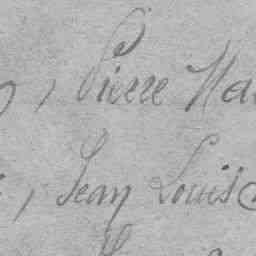 , Pierre Na
, Jean Louis